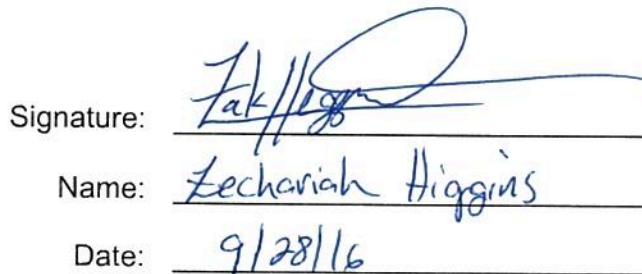 Signature: Zak Higgins
Name: Zechariah Higgins
Date: 9/28/16